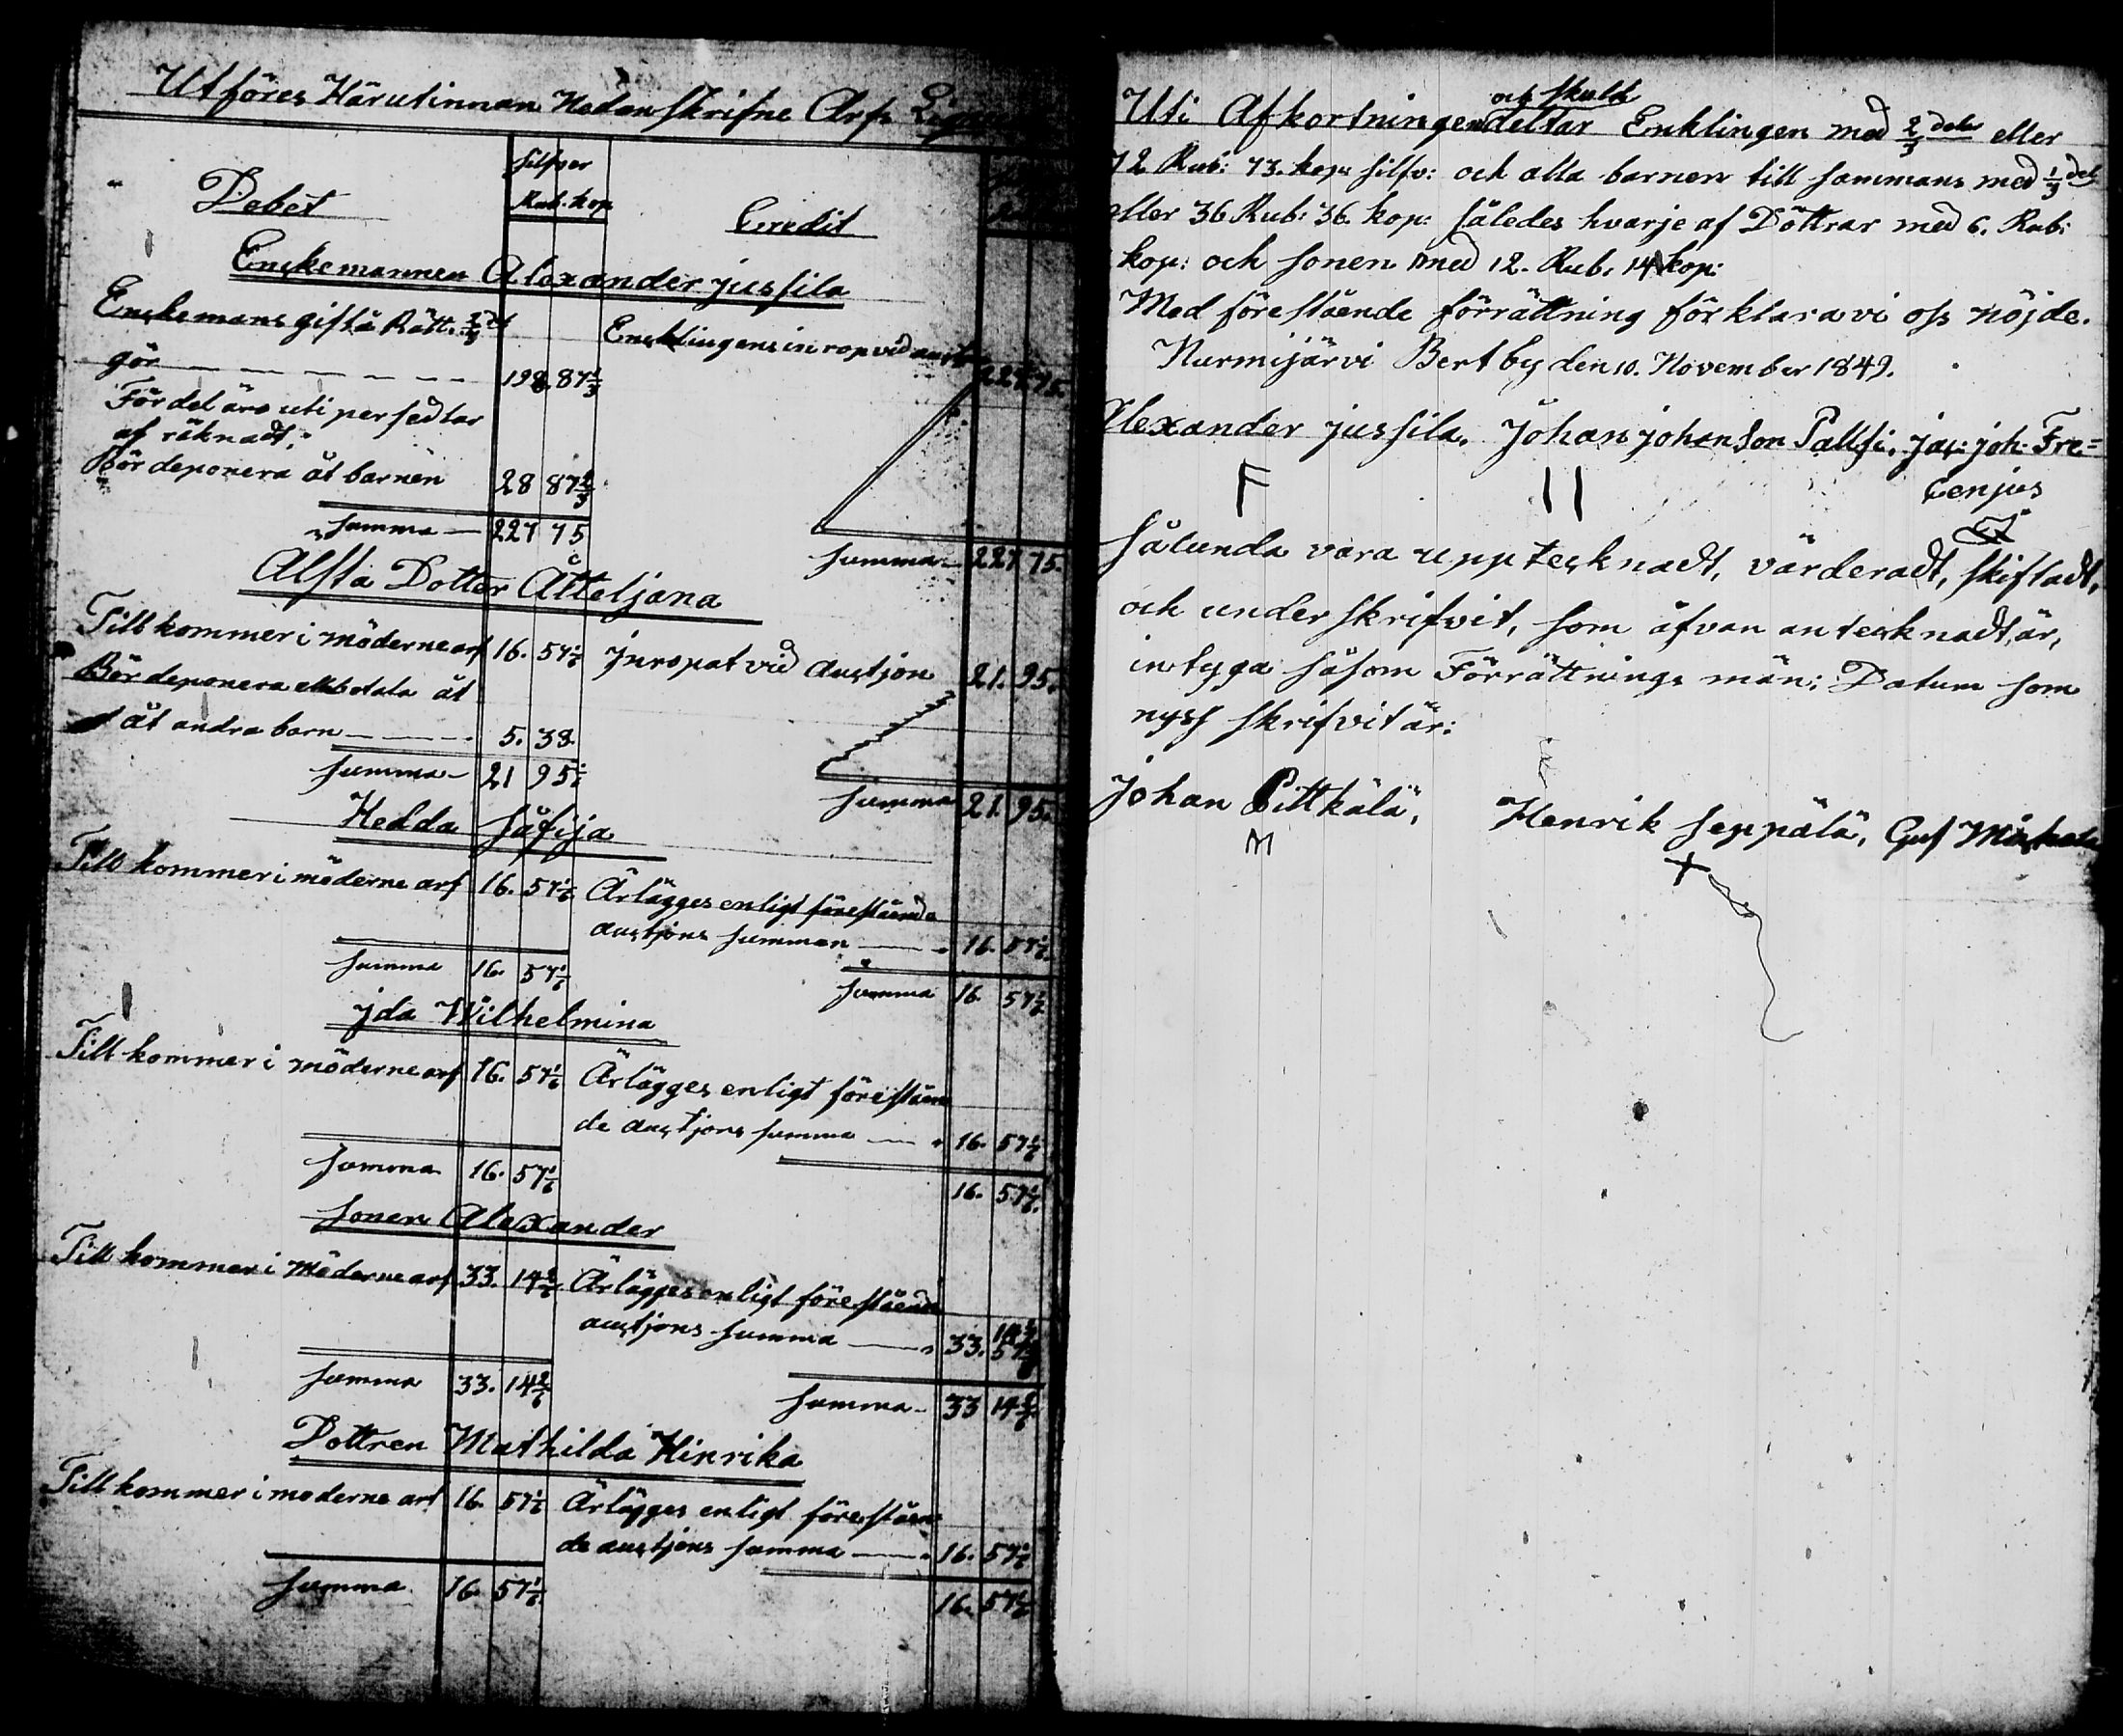 Utföres Härutinnan Nedanskrifne Arfs
Debet
Silfver
Rub. kop
Credit
Enckemannen Alexander jussila
Enckemans gifta Rätt. 2/3 del
gör — — — — — 198. 87 1/3
Enklingens inrop vid auct 227 75.
För del äro uti persedlar
af räknadt:
Bör deponera åt barnen 28 87 2/3
Summa — 227 75
Summa — 227 75.
Älsta Dotter Åtteljana
Till kommer i möderne arf 16. 57 1/6 jnropat vid Auctjon 21. 95.
Bör deponera åt
åt andra barn — — — 5. 38.
Summa — 21 95 1/6
Summa 21. 95.
Hedda Såfija
Till kommer i möderne arf 16. 57 1/6 Ärlägges enligt förestående
auctjons summan — 16. 57 1/6
Summa 16. 57 1/6
Summa 16. 57 1/6
jda Wilhelmina
Till kommer i möderne arf 16. 57 1/6 Ärlägges enligt föreståen
de auctjons summa — 16. 57 1/6
Summa 16. 57 1/6
16. 57 1/6
Sonen Alexander
Till kommer i Möderne arf 33. 14 2/6 Ärlägges enligt förestående
auctjons summa — 33. 14 2/6
Summa 33. 14 2/6
Summa — 33 14 2/6
Dottren Mathilda Hinrika
Till kommer i moderne arf 16. 57 1/6 Ärlägges enligt föreståen
de auctjons summa — 16. 57 1/6
Summa 16. 57 1/6
16. 57 1/6
och skuld
Uti Afkortningen deltar Enklingen med 2/3 delar eller
72 Rub: 73. kop: silfv: och alla barnen till sammans med 1/3 del
eller 36 Rub: 36. kop: således hvarje af Döttrar med 6. Rub:
kop: och sonen med 12. Rub. 14 kop:
Med förestående förrättning förklara vi oss nöjde.
Nurmijärvi Bertby den 10. November 1849.
Alexander jussila. Johan johanson Pallsi. jac: joh. Fre=
cenjus
F II
Sålunda vara upptecknadt, värderadt, skiftadt,
och underskrifvit, som åfvan antecknadt, är,
intyga såsom Förrättnings män: Datum som
nyss skrifvit är:
Johan Pittkälä, Henrik Seppälä, Gus
M +